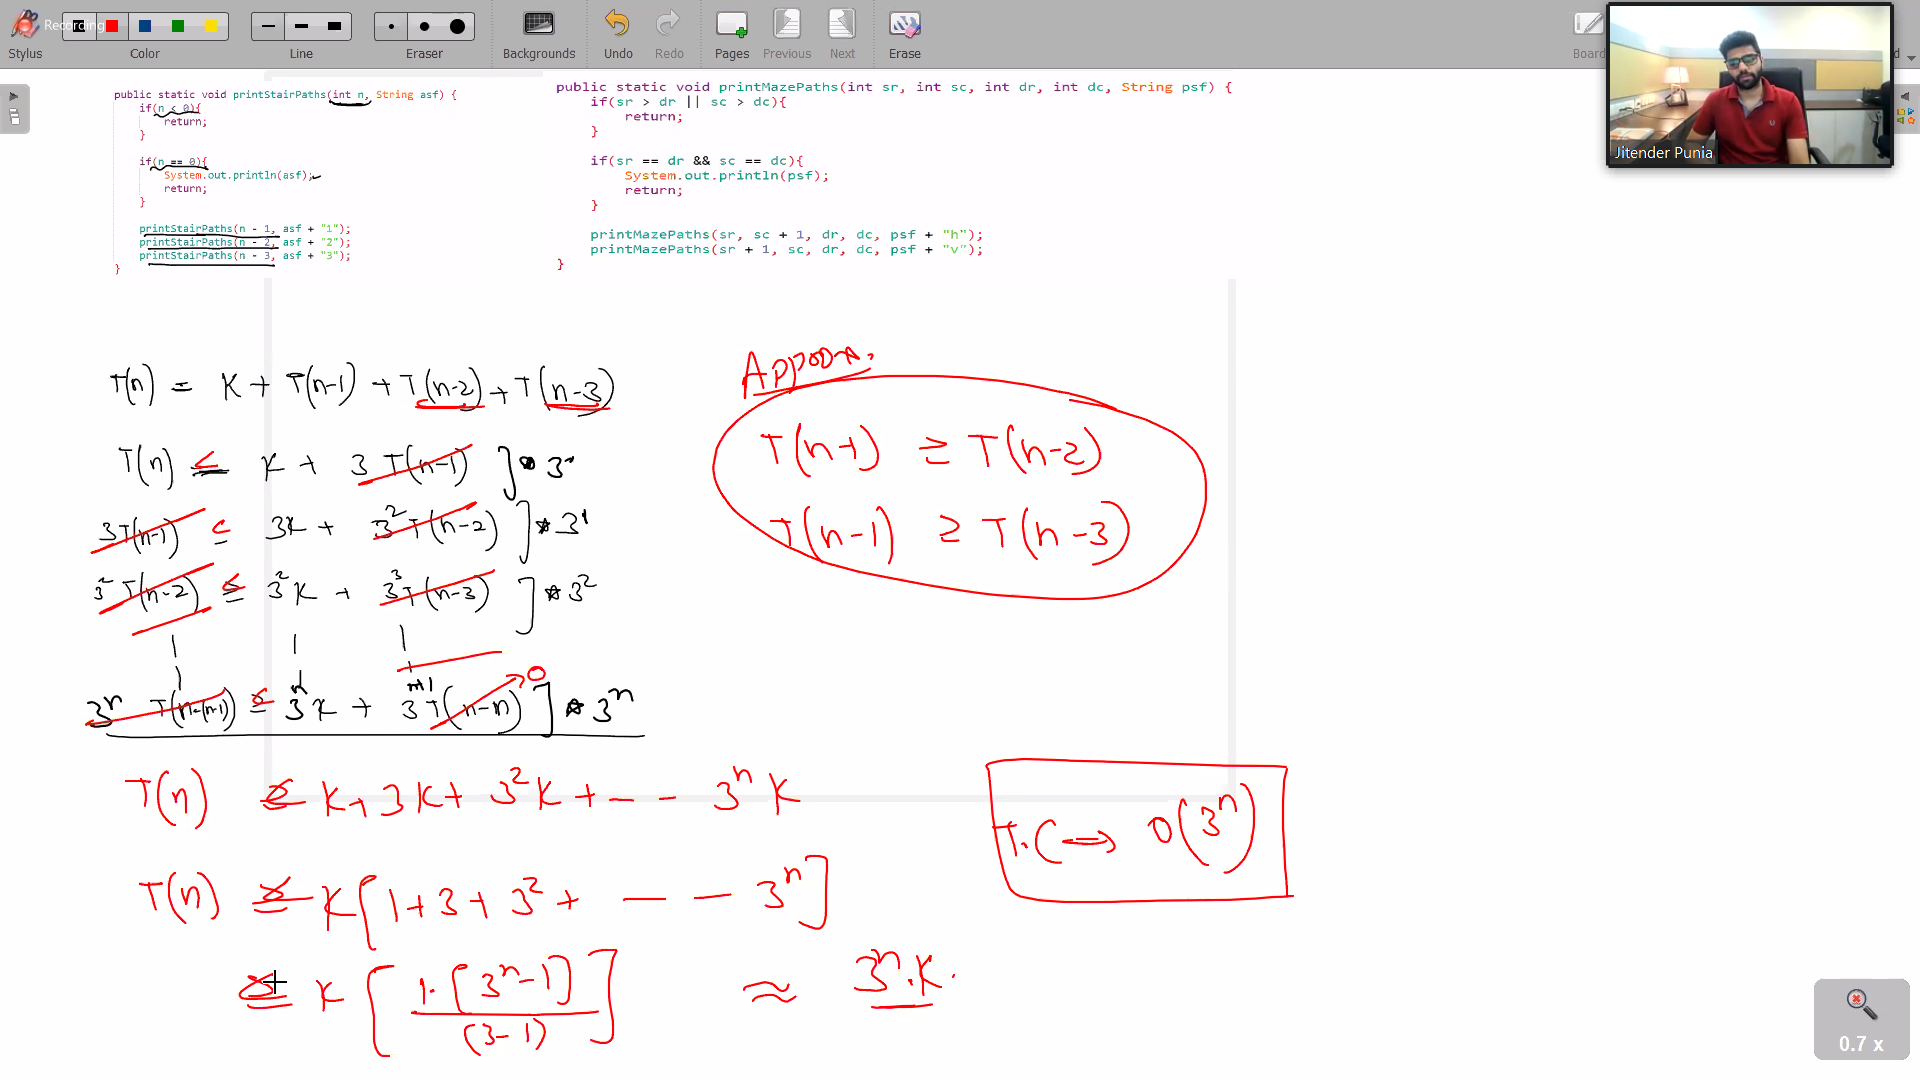 Recording
Stylus
Color
Line
Eraser
Backgrounds
Undo
Redo
Pages
Previous
Next
Erase
Board
Jitender Punia
public static void printStairPaths(int n, String asf) {
if(n < 0){
return;
}
if(n == 0){
System.out.println(asf);
return;
}
printStairPaths(n - 1, asf + "1");
printStairPaths(n - 2, asf + "2");
printStairPaths(n - 3, asf + "3");
}
public static void printMazePaths(int sr, int sc, int dr, int dc, String psf) {
if(sr > dr || sc > dc){
return;
}
if(sr == dr && sc == dc){
System.out.println(psf);
return;
}
printMazePaths(sr, sc + 1, dr, dc, psf + "h");
printMazePaths(sr + 1, sc, dr, dc, psf + "v");
}
T(n) = K + T(n-1) + T(n-2) + T(n-3)
T(n) ≤ K + 3 T(n-1) ] * 3⁰
3T(n-1) ≤ 3K + 3² T(n-2) ] * 3¹
3² T(n-2) ≤ 3² K + 3³ T(n-3) ] * 3²
3ⁿ T(n-(n-1)) ≤ 3ⁿ K + 3ⁿ⁺¹ T(n-n) → 0 ] * 3ⁿ
T(n) ≤ K + 3K + 3² K + - - 3ⁿ K
T(n) ≤ K [ 1 + 3 + 3² + - - 3ⁿ ]
≤ K [ 1. [3ⁿ - 1] / (3-1) ] ≈ 3ⁿ . K .
T(n-1) ≥ T(n-2)
T(n-1) ≥ T(n-3)
T.C → O(3ⁿ)
0.7 x